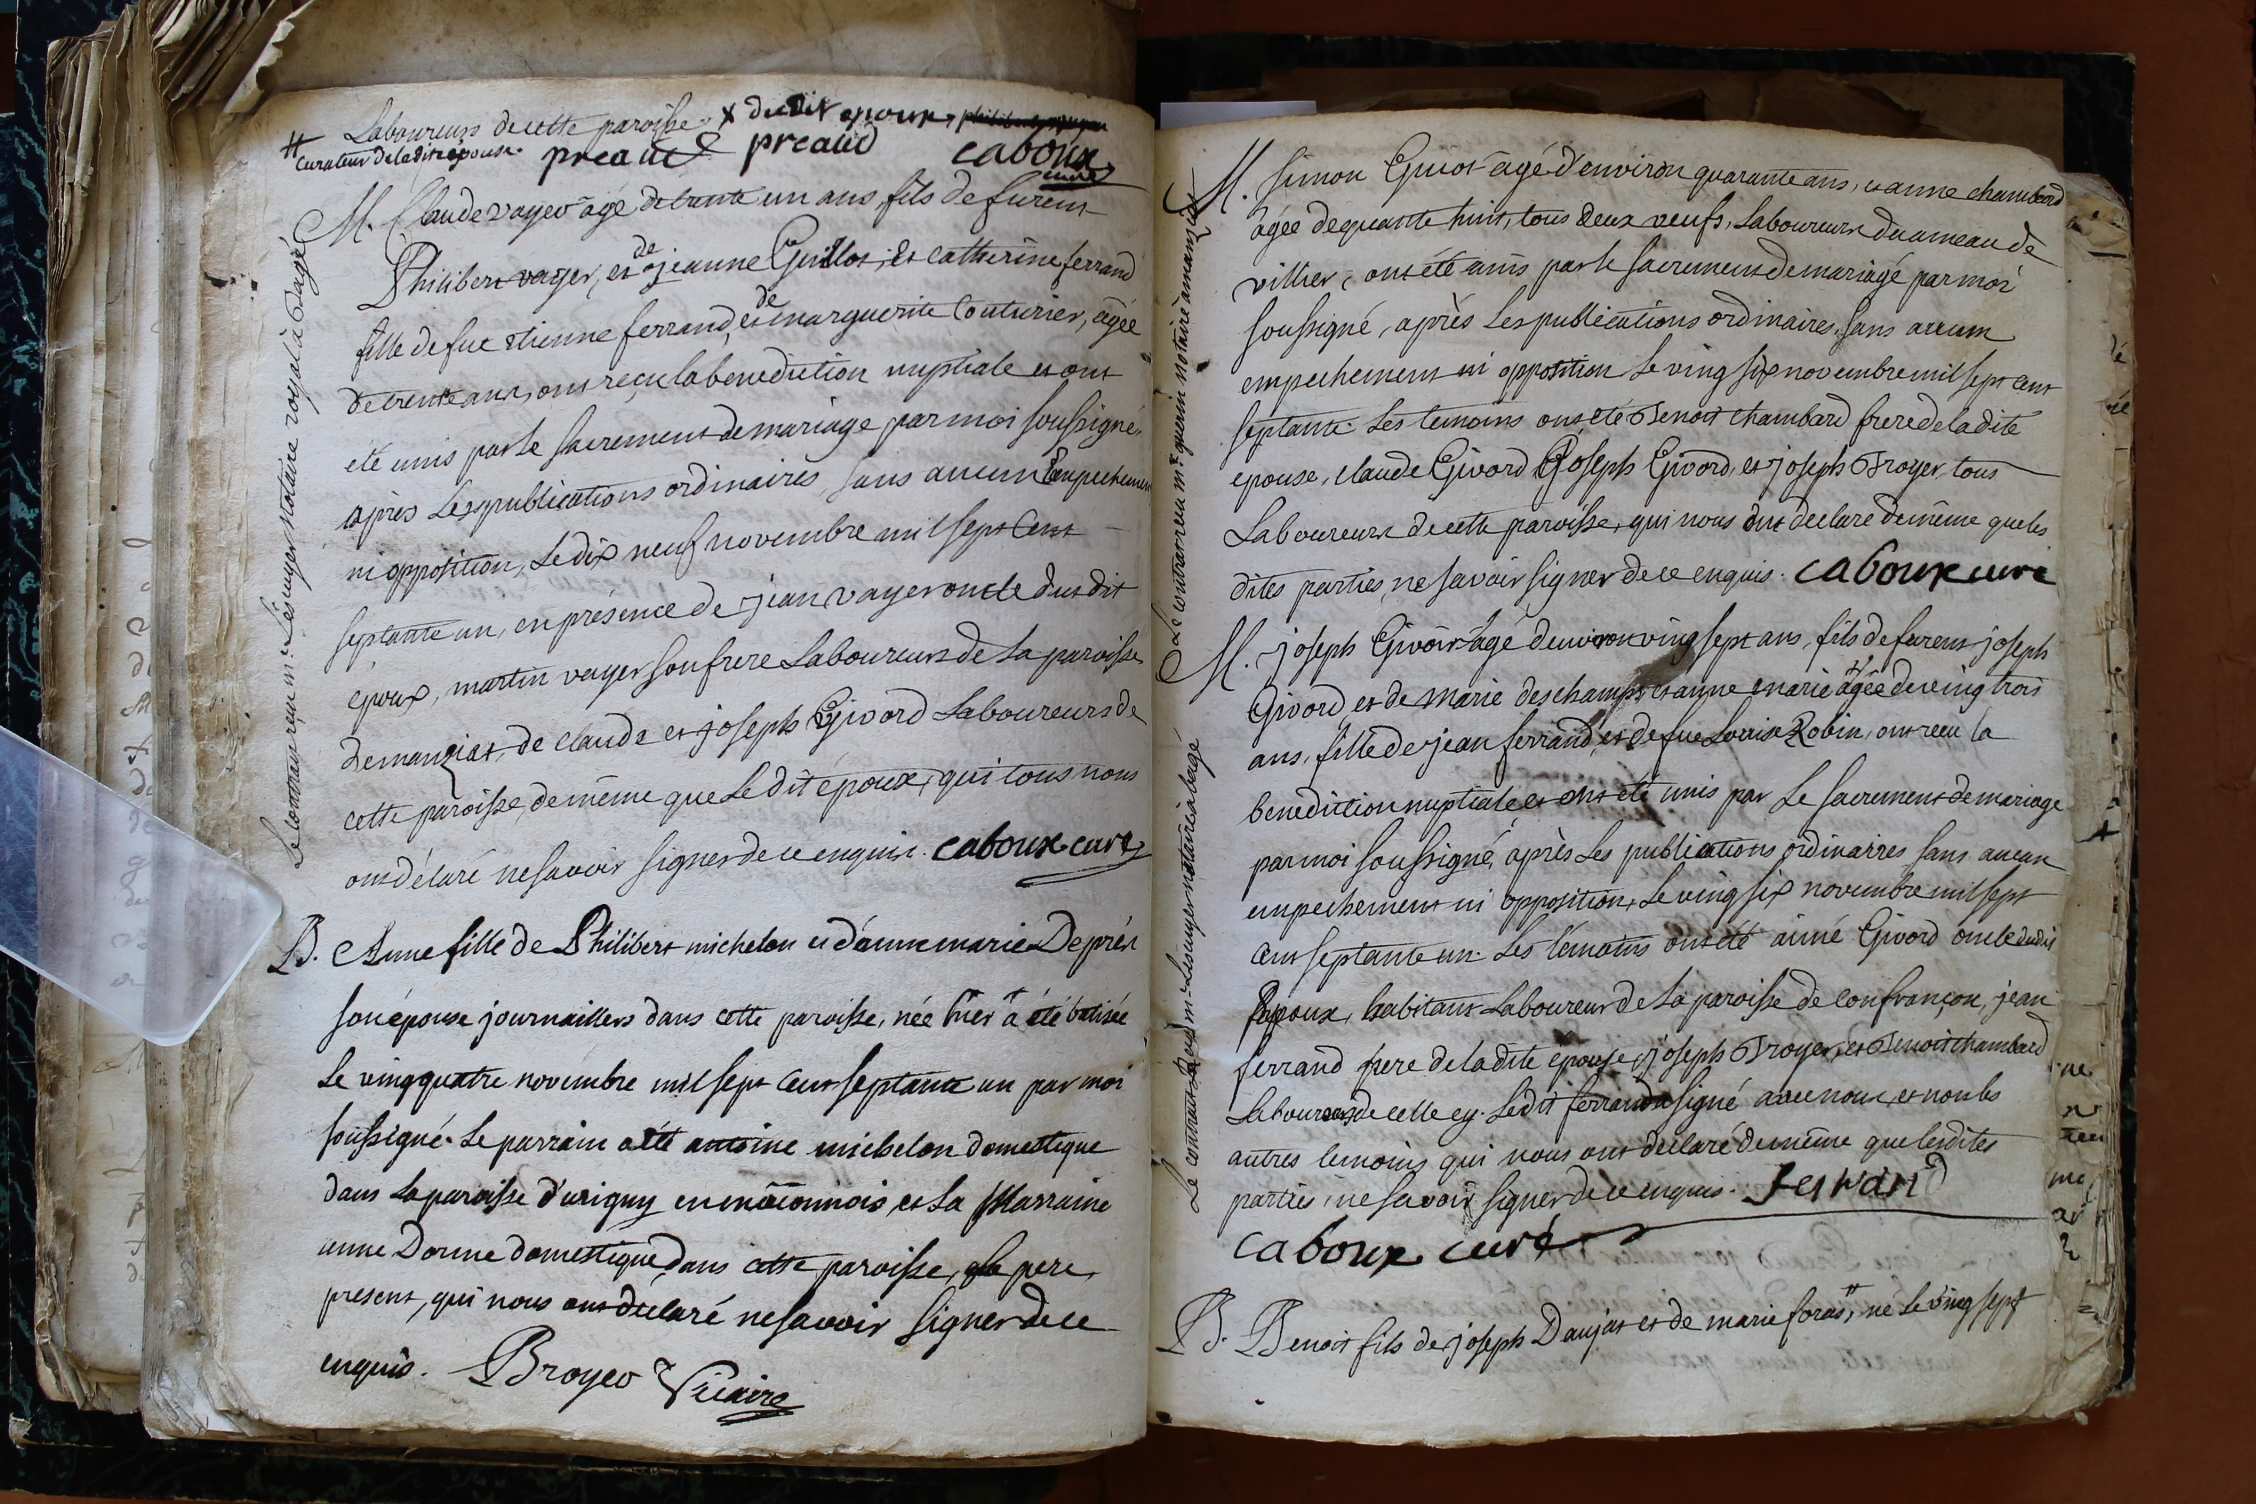 Laboureurs de cette paroisse. x dudit epoux,
# curateur de la dite epouse. preaud preaud caboux
curé
M. Claude vayer agé de trente un ans, fils de furent
Philibert vayer, et de jeanne Guillot; et catherine ferrand
fille de fue etienne ferrand, et de marguerite Couturier, agée
de trente ans, ont reçu la benediction nuptiale et ont
été unis par le sacrement de mariage par moi soussigné,
après Les publications ordinaires, sans aucun Empechement
ni opposition, Le dix neuf novembre mil sept Cent
septante un, en présence de jean vayer oncle dudit
epoux, martin vayer son frere Laboureurs de La paroisse
de manziat, de claude et joseph Givord Laboureurs de
cette paroisse, de même que Le dit époux, qui tous nous
ont déclaré ne savoir signer de ce enquis. caboux curé
Le contrat reçu m.e Lesuyer Notaire royal à Bagé
B. Anne fille de Philibert michelon et d'anne marie Deprés
son épouse journailiers dans cette paroisse, née hier a été batisée
Le vingquatre novembre mil sept Cent septante un par moi
soussigné. Le parrain a été antoine michelon domestique
dans La paroisse d'urigny en mâconnois, et La Marraine
anne Donne domestique dans cette paroisse, le pere,
present, qui nous ont declaré ne savoir signer de ce
enquis. Broyer Vicaire
M. simon Guiot agé d'environ quarante ans, et anne chambard
âgée de quante huit, tous deux veufs, Laboureurs du ameau de
villier, ont été unis par le sacrement de mariage par moi
soussigné, après Les publications ordinaires, sans aucun
empechement ni opposition Le ving six novembre mil sept cent
septante. Les temoins ont été Benoit chambard frere de la dite
epouse, claude Givord Joseph Givord, et joseph Broyer, tous
Laboureurs de cette paroisse, qui nous ont declaré de même que les
dites parties, ne savoir signer de ce enquis. caboux curé
Le contrat reçu m.e guerin notaire à manziat
M. joseph Givord agé d'environ ving sept ans, fils de furent joseph
Givord, et de marie deschamps et anne marie âgée de ving trois
ans, fille de jean ferrand, et de fue Louise Robin, ont reçu la
benediction nuptiale, et ont été unis par Le sacrement de mariage
par moi soussigné, après Les publications ordinaires sans aucun
empechement ni opposition, Le ving six novembre mil sept
Cent septante un. Les témoins ont été aimé Givord oncle dudit
Epoux, habitant Laboureur de La paroisse de confrançon, jean
ferrand pere de la dite epouse, joseph Broyer, et Benoit chambard
Laboureurs de celle cy. Le dit ferrand a signé avec nous, et non les
autres temoins qui nous ont declaré de même que les dites
parties ne savoir signer de ce enquis. ferrand
caboux curé
Le contrat reçu m.e Lesuyer notaire à bagé
B. Benoit fils de joseph Daujat et de marie foras, né Le ving sept